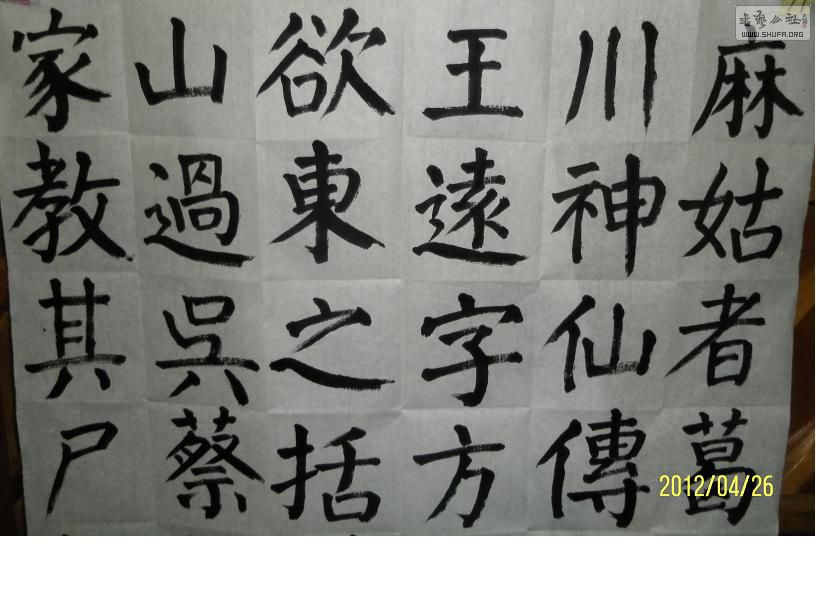 麻姑者葛
川神仙傳
王遠字方
欲東之括
山過吳蔡
家教其尸
2012/04/26
书艺公社
WWW.SHUFA.ORG